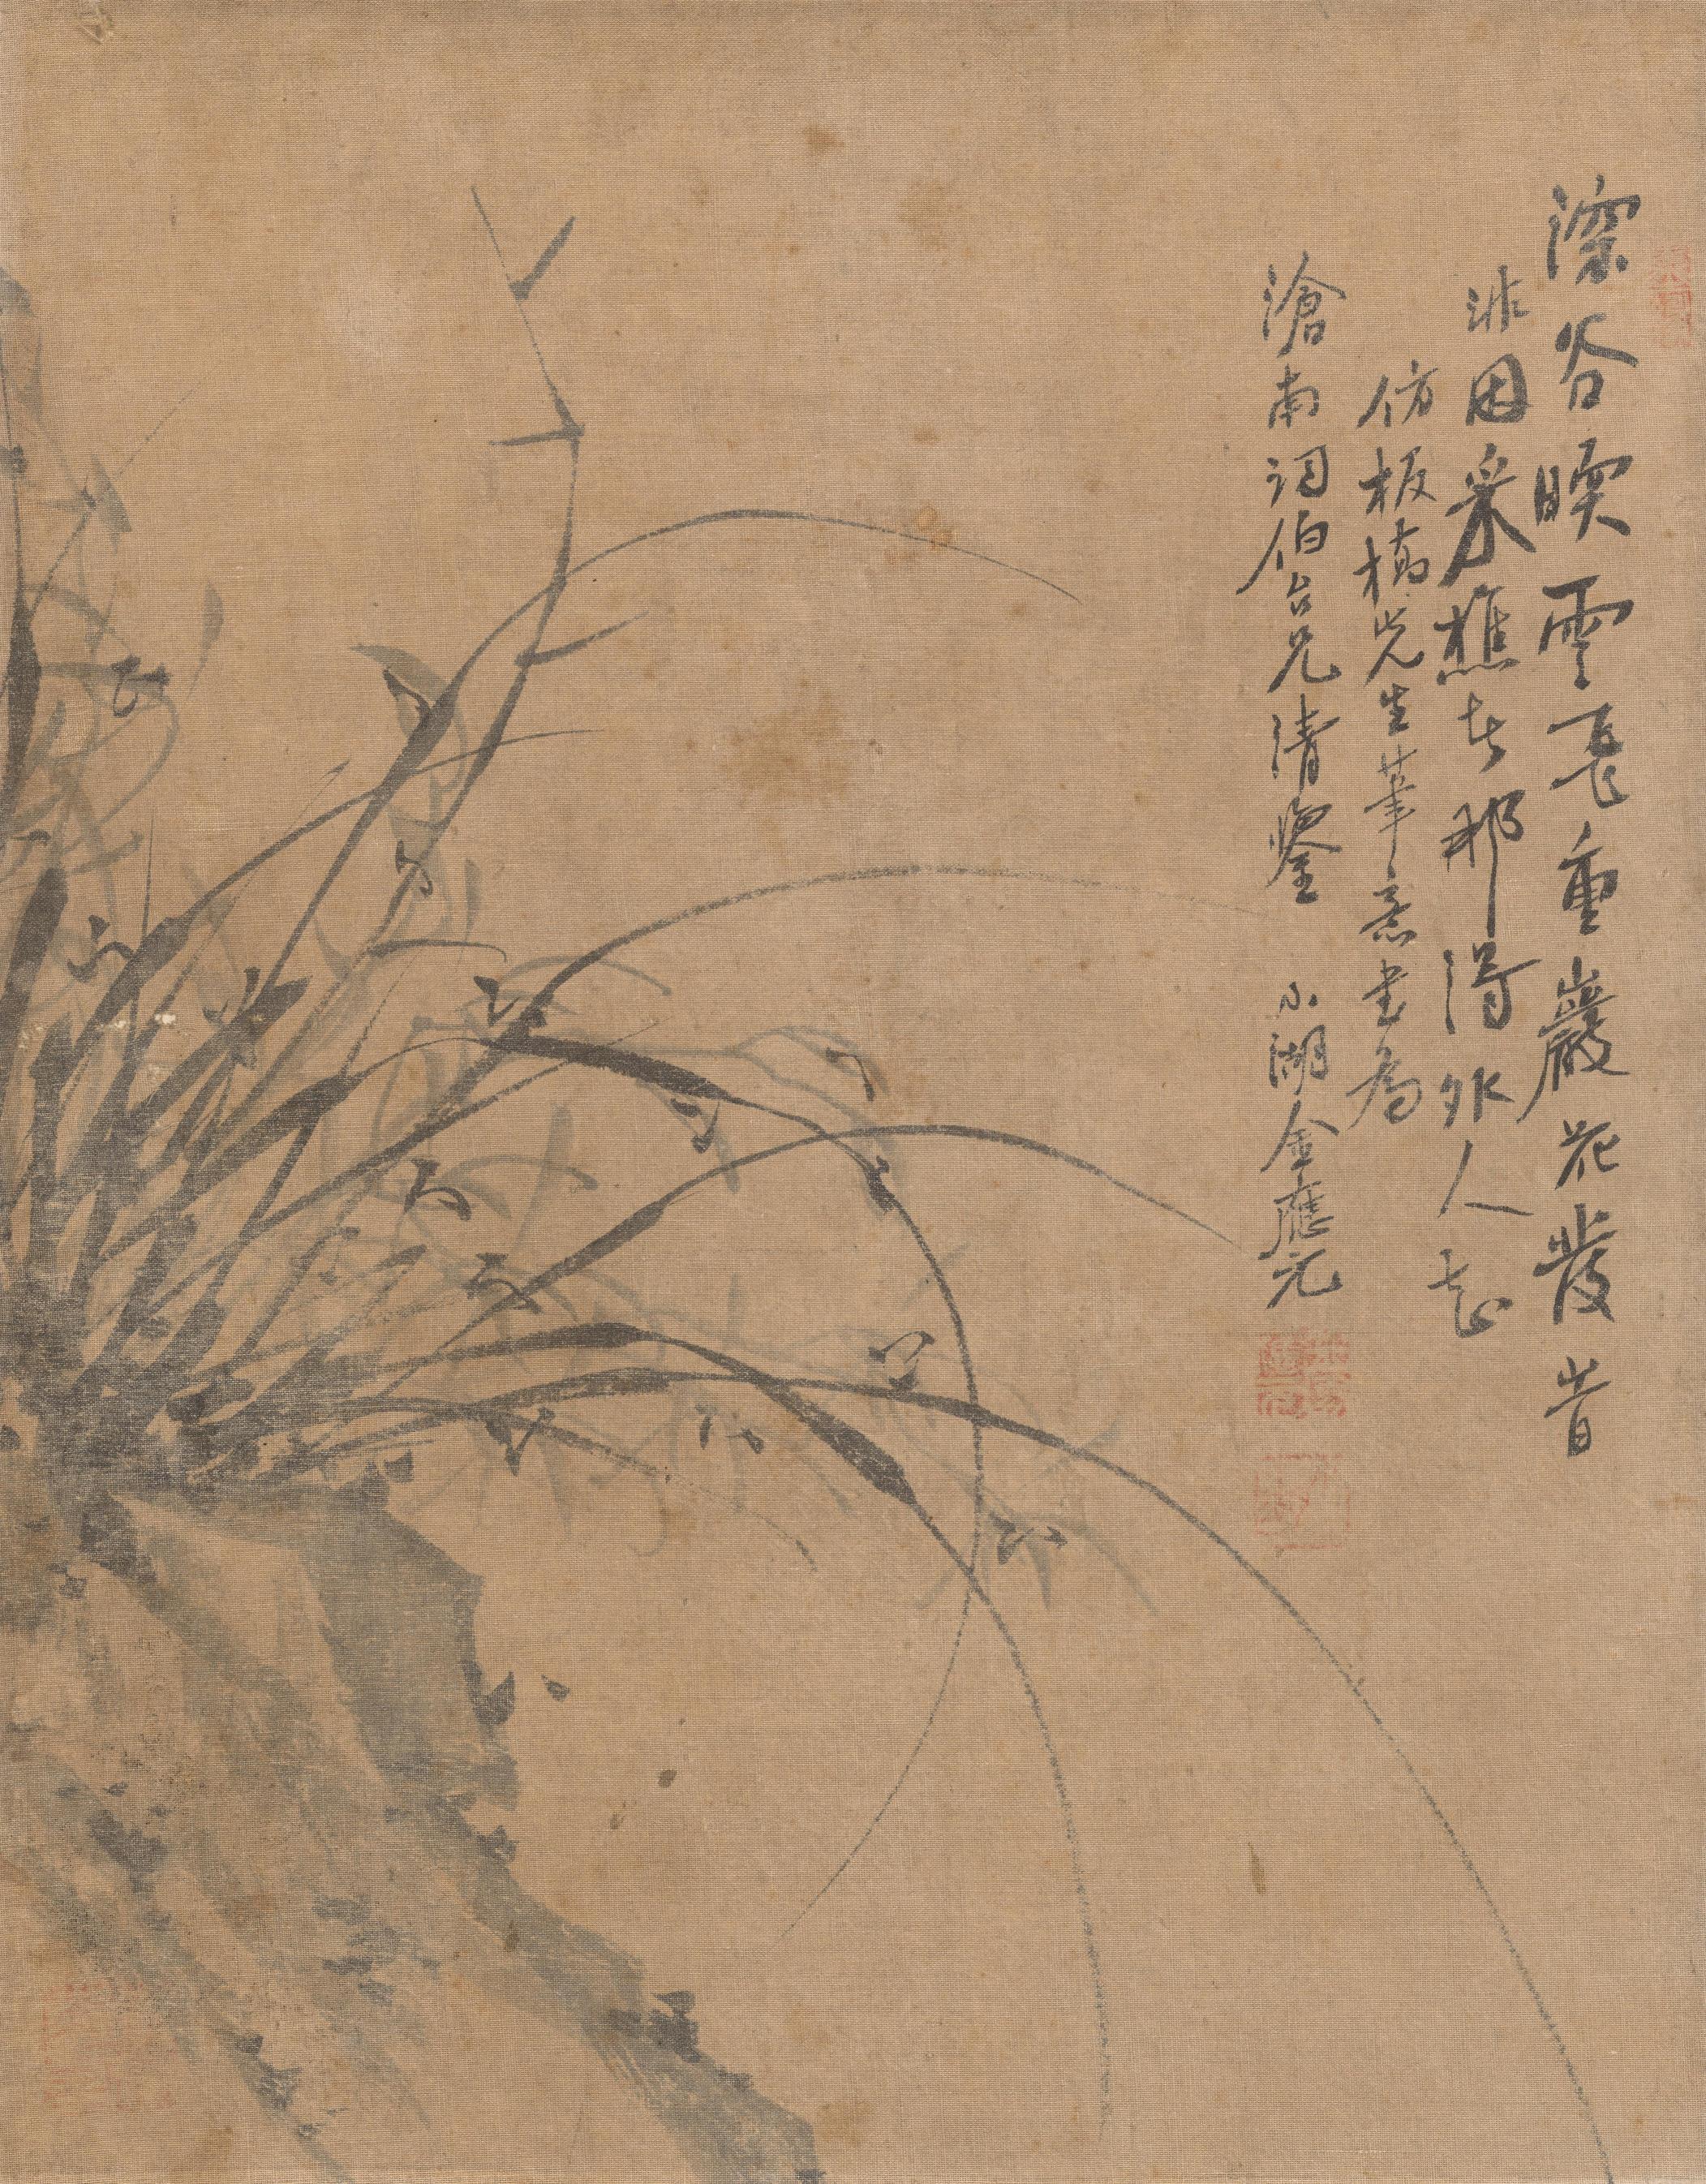 深谷暖雲飛重巖花發旹
非因采樵者那得外人知
仿板橋先生筆意畫為
滄南詞伯台兄清鑒 小湖金應元